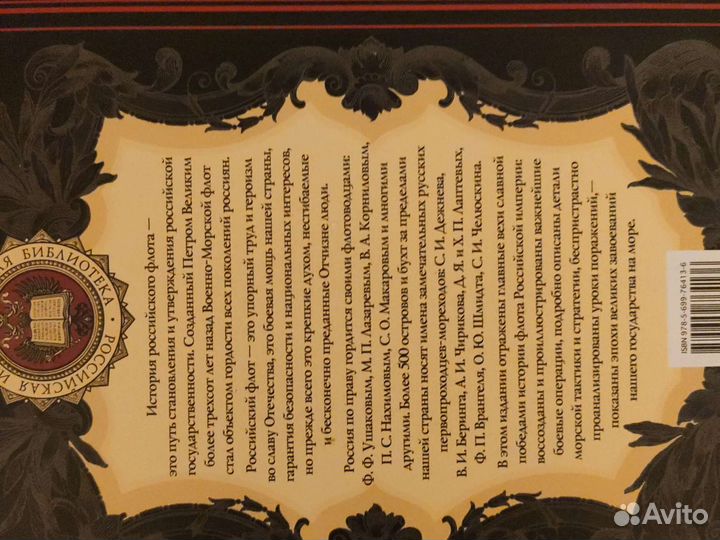 История российского флота —
это путь становления и утверждения российской
государственности. Созданный Петром Великим
более трехсот лет назад Военно-Морской флот
стал объектом гордости всех поколений россиян.
Российский флот — это упорный труд и героизм
во славу Отечества, это боевая мощь нашей страны,
гарантия безопасности и национальных интересов,
но прежде всего это крепкие духом, несгибаемые
и бесконечно преданные Отчизне люди.
Россия по праву гордится своими флотоводцами:
Ф. Ф. Ушаковым, М. П. Лазаревым, В. А. Корниловым,
П. С. Нахимовым, С. О. Макаровым и многими
другими. Более 500 островов и бухт за пределами
нашей страны носят имена замечательных русских
первопроходцев-мореходов: С. И. Дежнева,
В. И. Беринга, А. И. Чирикова, Д. Я. и Х. П. Лаптевых,
Ф. П. Врангеля, О. Ю. Шмидта, С. И. Челюскина.
В этом издании отражены главные вехи славной
победами истории флота Российской империи:
воссозданы и проиллюстрированы важнейшие
боевые операции, подробно описаны детали
морской тактики и стратегии, беспристрастно
проанализированы уроки поражений, —
показаны эпохи великих завоеваний
нашего государства на море.
БИБЛИОТЕКА • РОССИЙСКАЯ
ISBN 978-5-699-76413-6
Avito